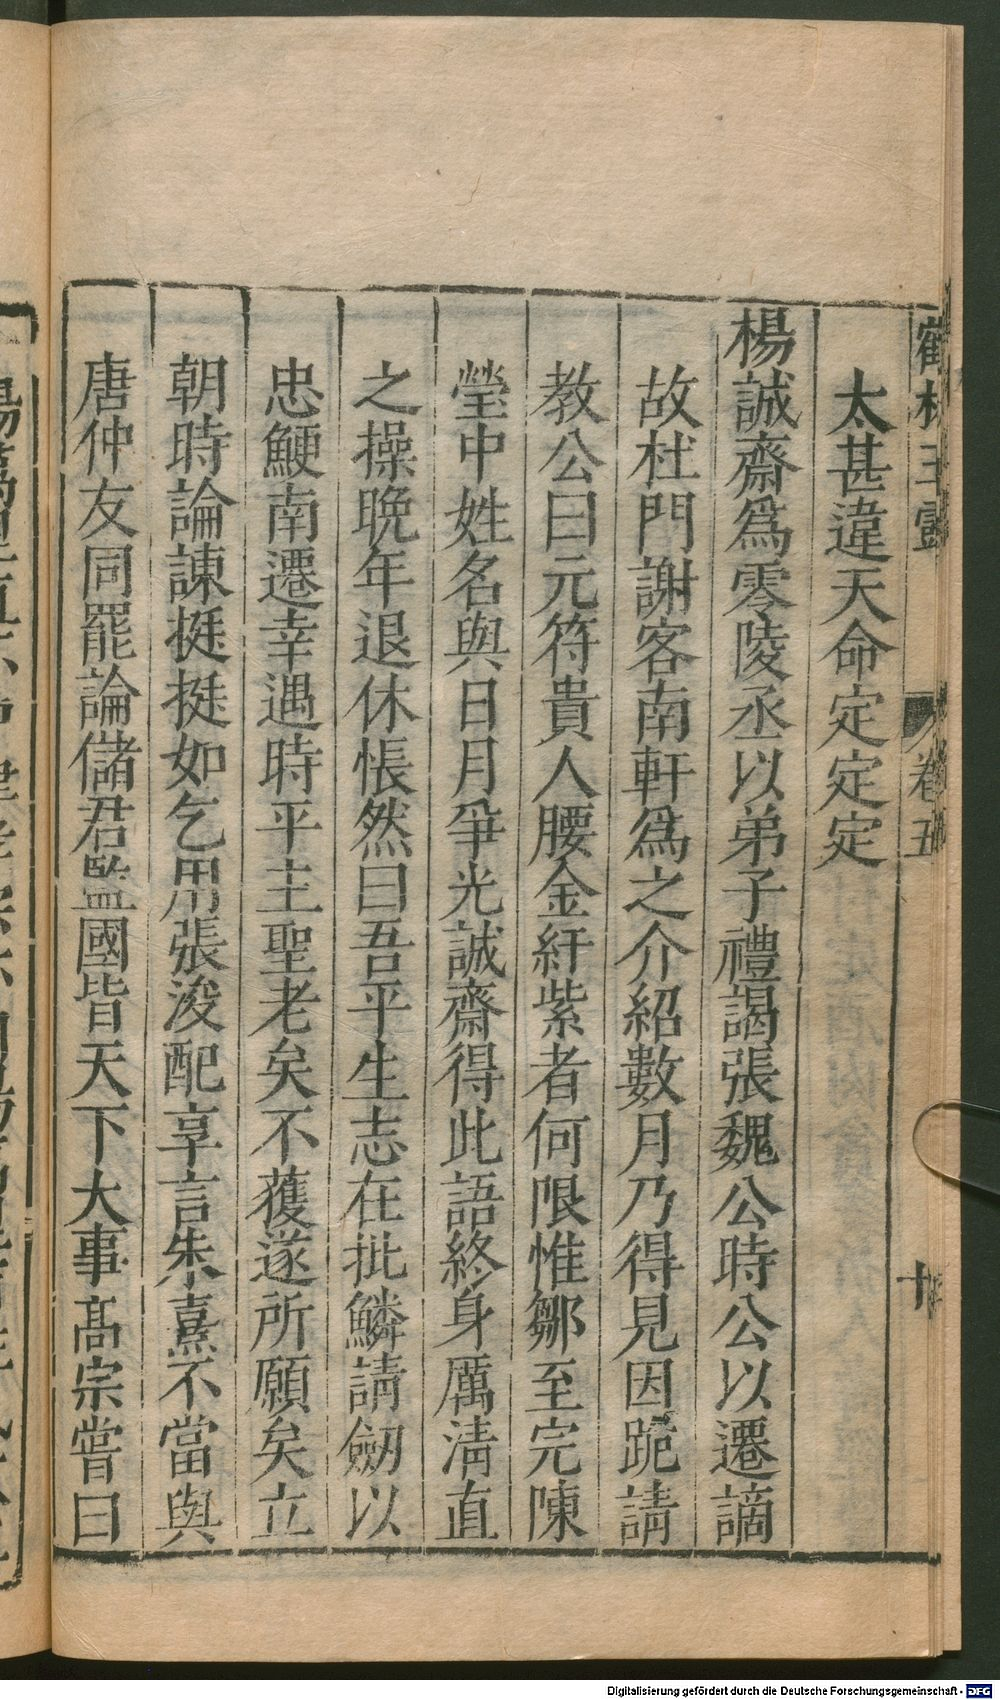 鶴林玉露
卷五
十
太甚違天命定定定
楊誠齋爲零陵丞以弟子禮謁張魏公時公以遷謫
故杜門謝客南軒爲之介紹數月乃得見因跪請
教公曰元符貴人腰金紆紫者何限惟鄒至完陳
瑩中姓名與日月爭光誠齋得此語終身厲淸直
之操晚年退休悵然曰吾平生志在批鱗請劒以
忠鯁南遷幸遇時平主聖老矣不獲遂所願矣立
朝時論諫挺挺如乞用張浚配享言朱熹不當與
唐仲友同罷論儲君監國皆天下大事髙宗嘗曰
Digitalisierung gefördert durch die Deutsche Forschungsgemeinschaft - DFG